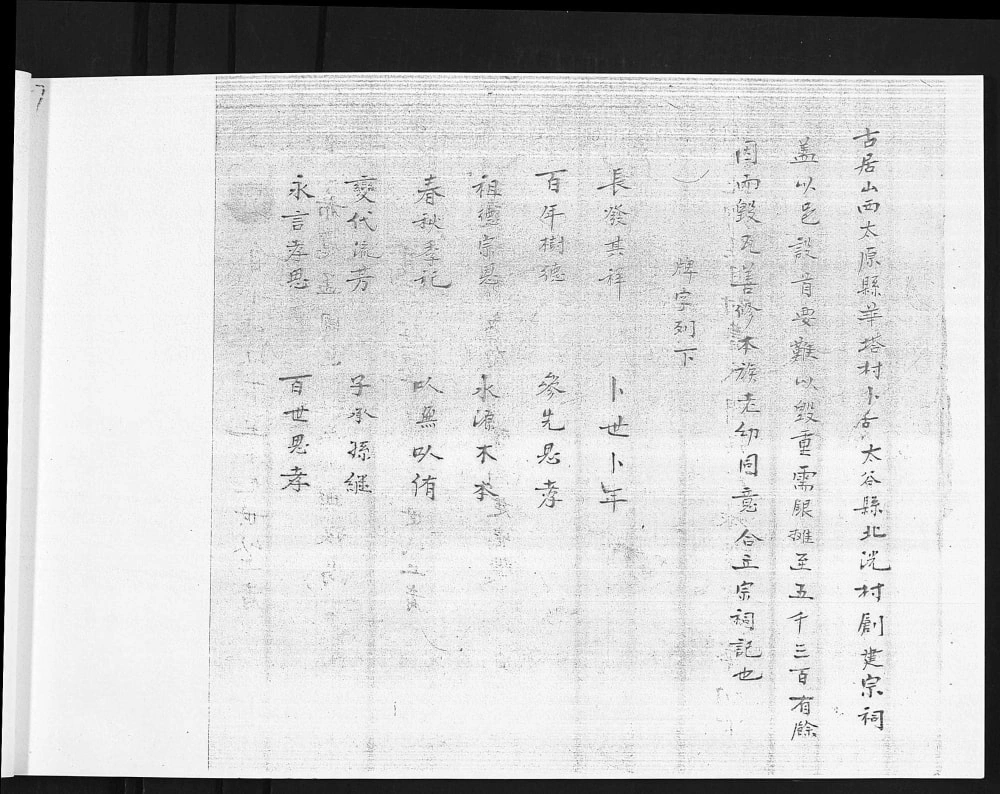 古居山西太原縣華塔村卜居太谷縣北洸村創建宗祠
蓋以邑設首要難以毀重需服摊至五千三百有餘
因而毀瓦善修本族老幼同意合立宗祠記也
牌字列下
長發其祥 卜世卜年
百年樹德 參先思孝
祖德宗恩 水源木本
春秋季祀 以無以侑
變代流芳 子承孫繼
永言孝思 百世思孝